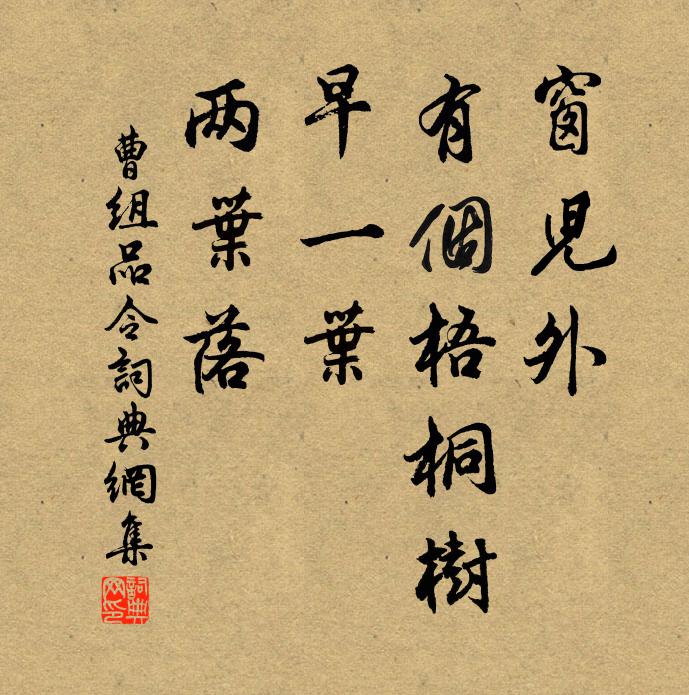 窗児外
有個梧桐樹
早一葉
两葉落
曹组品令詞典網集
詞典网印